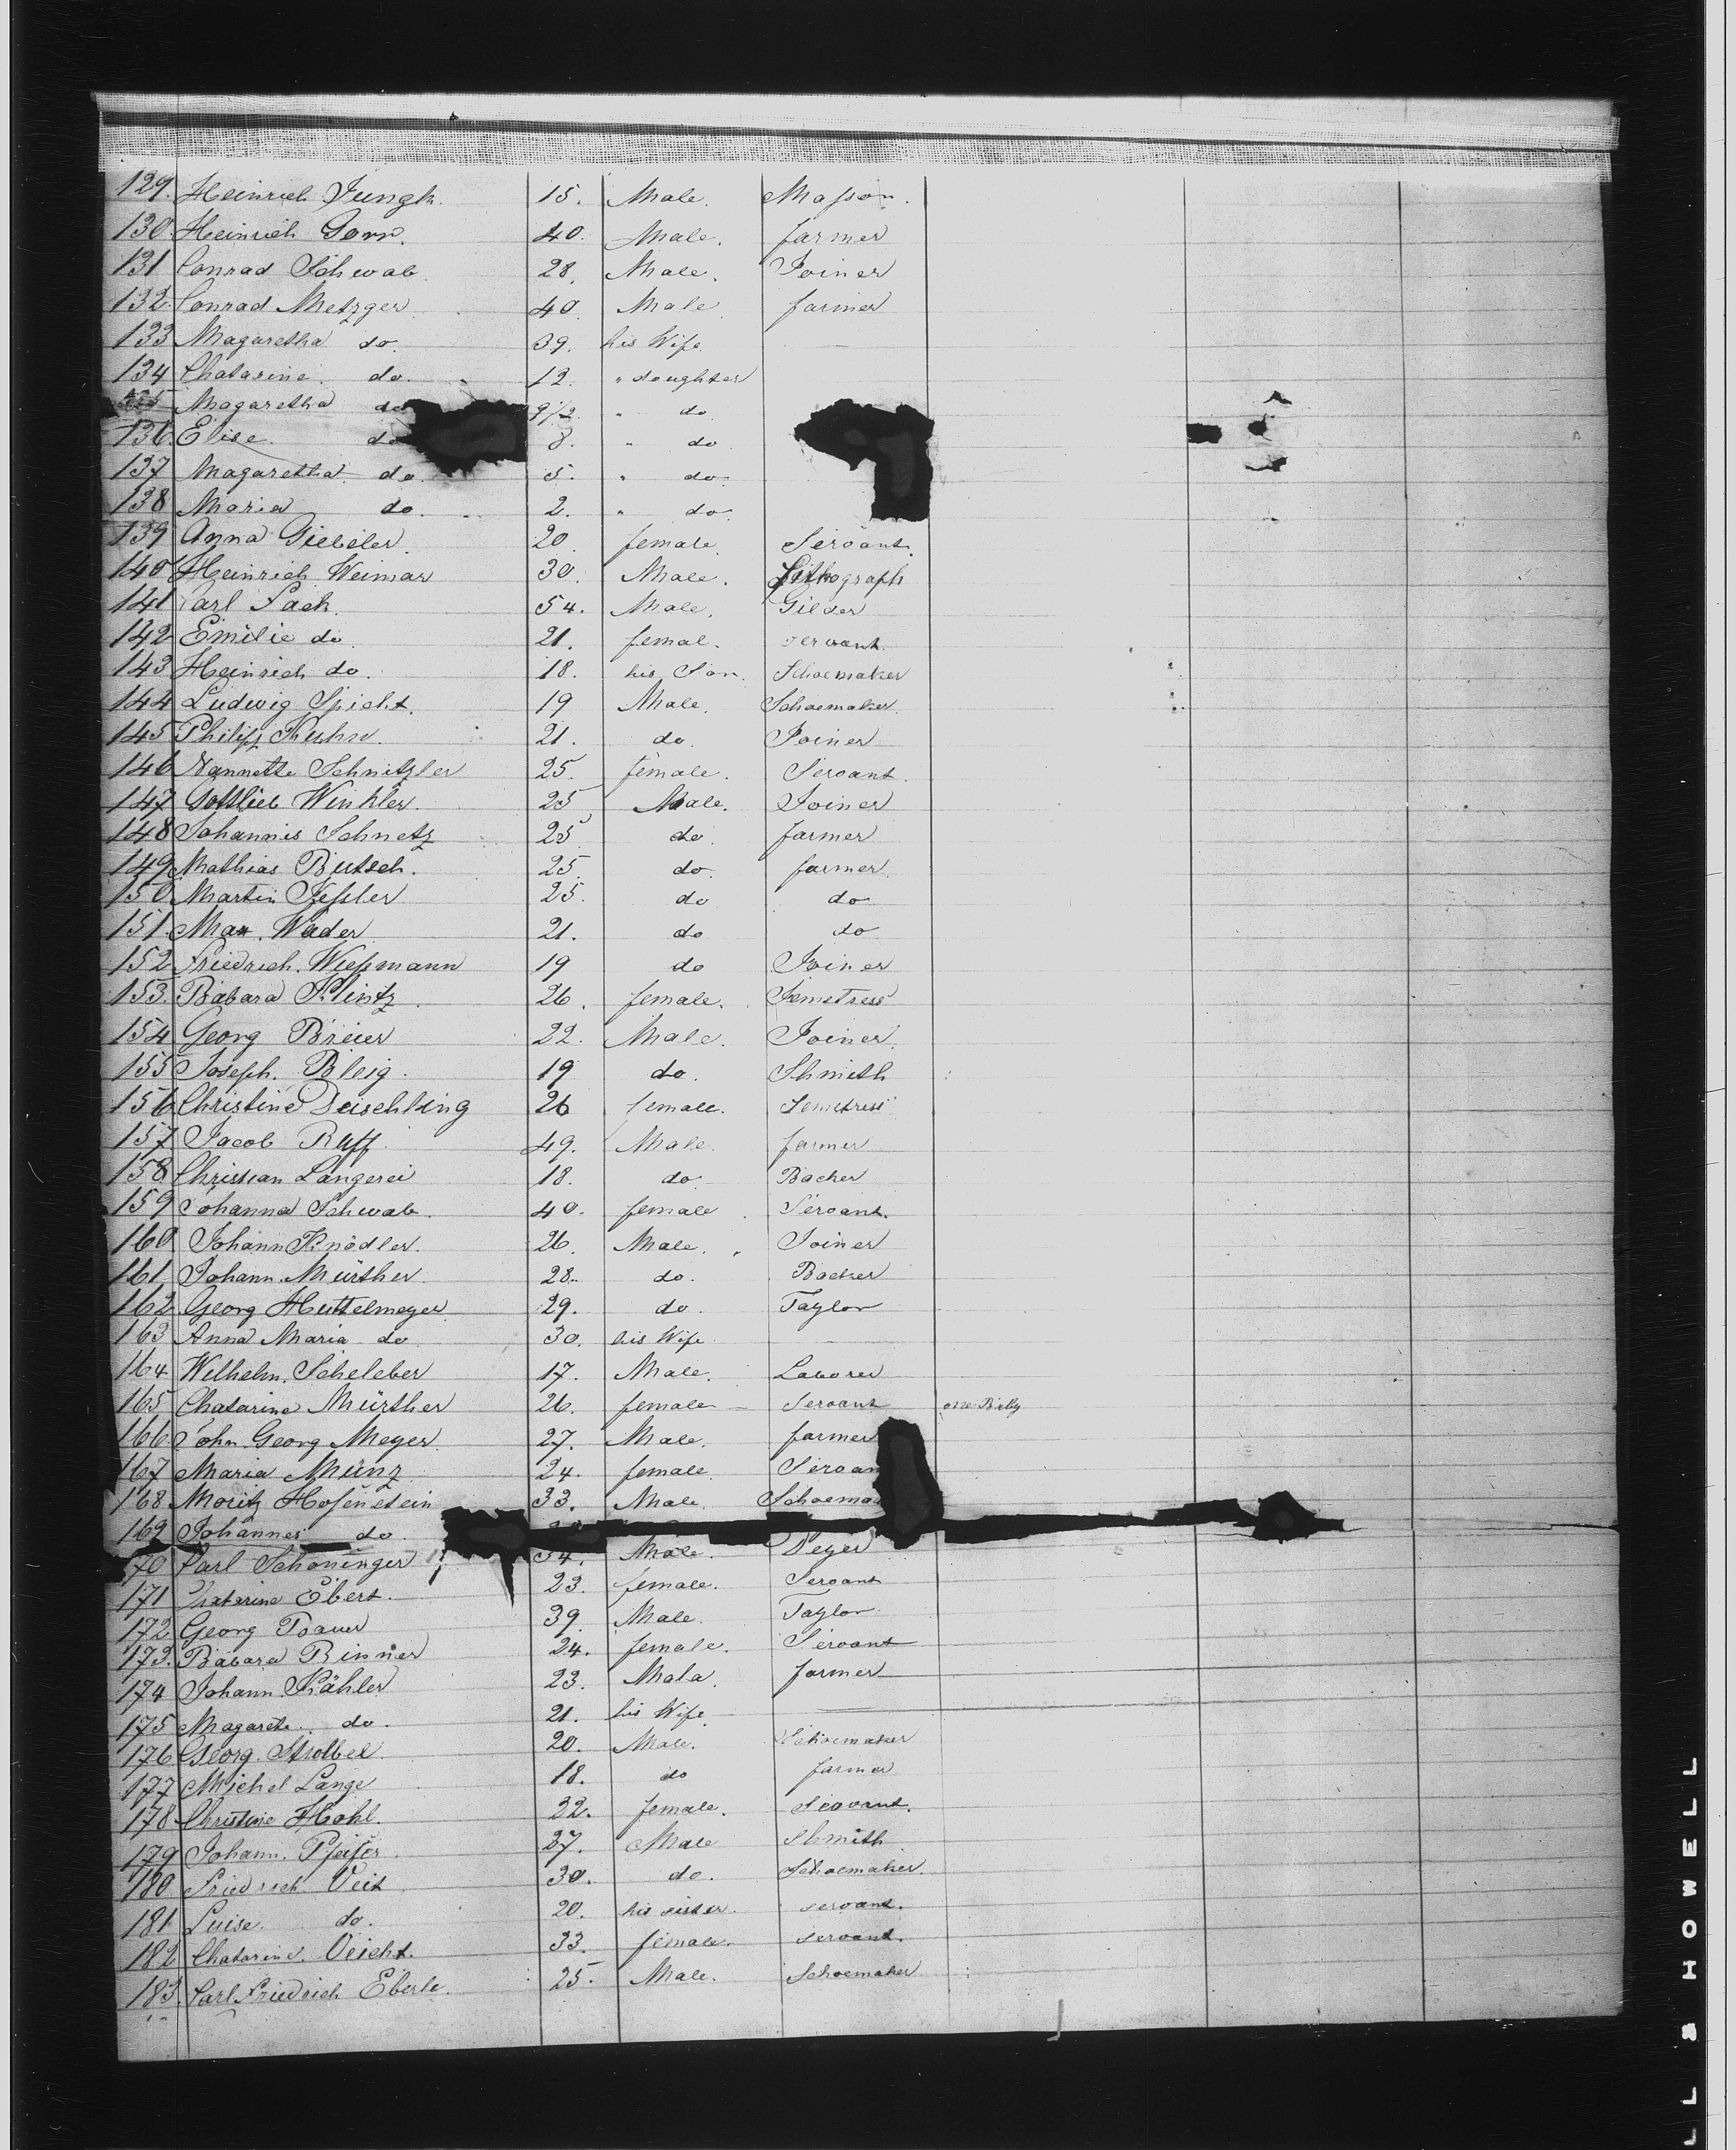 129. Heinrich Jungk. 15. Male. Masson.
130. Heinrich Gorr. 40. Male. farmer
131 Conrad Schwab 28. Male. Joiner
132. Conrad Metzger 40 Male farmer
133 Magaretha do. 39. his Wife
134 Chatarine do. 12. " doughter
Magaretha do 9/12 " do
136. Elise. do 8. " do
137 Magaretha do. 5. " do
138 Maria do. 2. " do.
139 Anna Giebeler. 20 female. Servant.
140 Heinrich Weimar 30. Male. Lithograph
141 Carl Sack. 54. Male. Gilder
142 Emilie do 21. femal. servant.
143 Heinrich do. 18. his Son. Schoemaker
144 Ludwig Spicht. 19 Male. Schoemaker
145 Philipp Kuhn. 21. do. Joiner
146 Nannette Schnitzler 25. female. Servant.
147 Gottlieb Winkler. 25 Male. Joiner
148 Johannis Schnetz 25 do. farmer
149. Mathias Butsch. 25. do. farmer
150 Martin Kessler 25. do do
151. Max. Wader 21. do do
152 Friedrich. Wiessmann 19 do Joiner
153. Babara Klintz. 26. female. Semetress
154 Georg Breier 22. Male. Joiner.
155 Joseph. Bleig. 19 do. Shmith
156 Christine Deischling 26 female. Semetress
157 Jacob Ruff 49. Male. farmer
158 Christian Langerei 18. do. Backer
159 Johanna Schwab. 40. female. Servant.
160 Johann Knödler. 26. Male. Joiner
161 Johann. Mürther. 28. do. Backer
162 Georg Huttelmeyer 29. do. Taylor
163 Anna Maria do 30. his Wife
164 Wilhelm. Scheleber 17. Male. Laborer
165 Chatarine Mürther 26. female Servant one Baby
166 John. Georg Meyer. 27. Male. farmer
167 Maria Münz 24. female. Servan
168 Moritz Hosenstein 33. Male. Schoema
169 Johannes do.
70 Carl Schöninger 34. Male. Deyer
171 Chatarine Ebert. 23. female. Servant
172 Georg Bauer 39. Male. Taylor
173. Babara Rinner 24. female. Servant
174 Johann. Kähler 23. Mala. farmer
175 Magarete. do. 21. his Wife
176 Georg. Strolbel 20. Male. Schoemaker
177 Michel Lange 18. do farmer
178 Christine Hohl. 22. female. Servant.
179 Johann. Pfeifer. 27. Male Shmith
180 Friedrich Veit 30. do. Schoemaker.
181 Luise. do. 20. his sister. servant.
182 Chatarine. Veicht. 33. female. servant.
183. Carl Friedrich Eberle. 25. Male. Schoemaker
LL & HOWELL